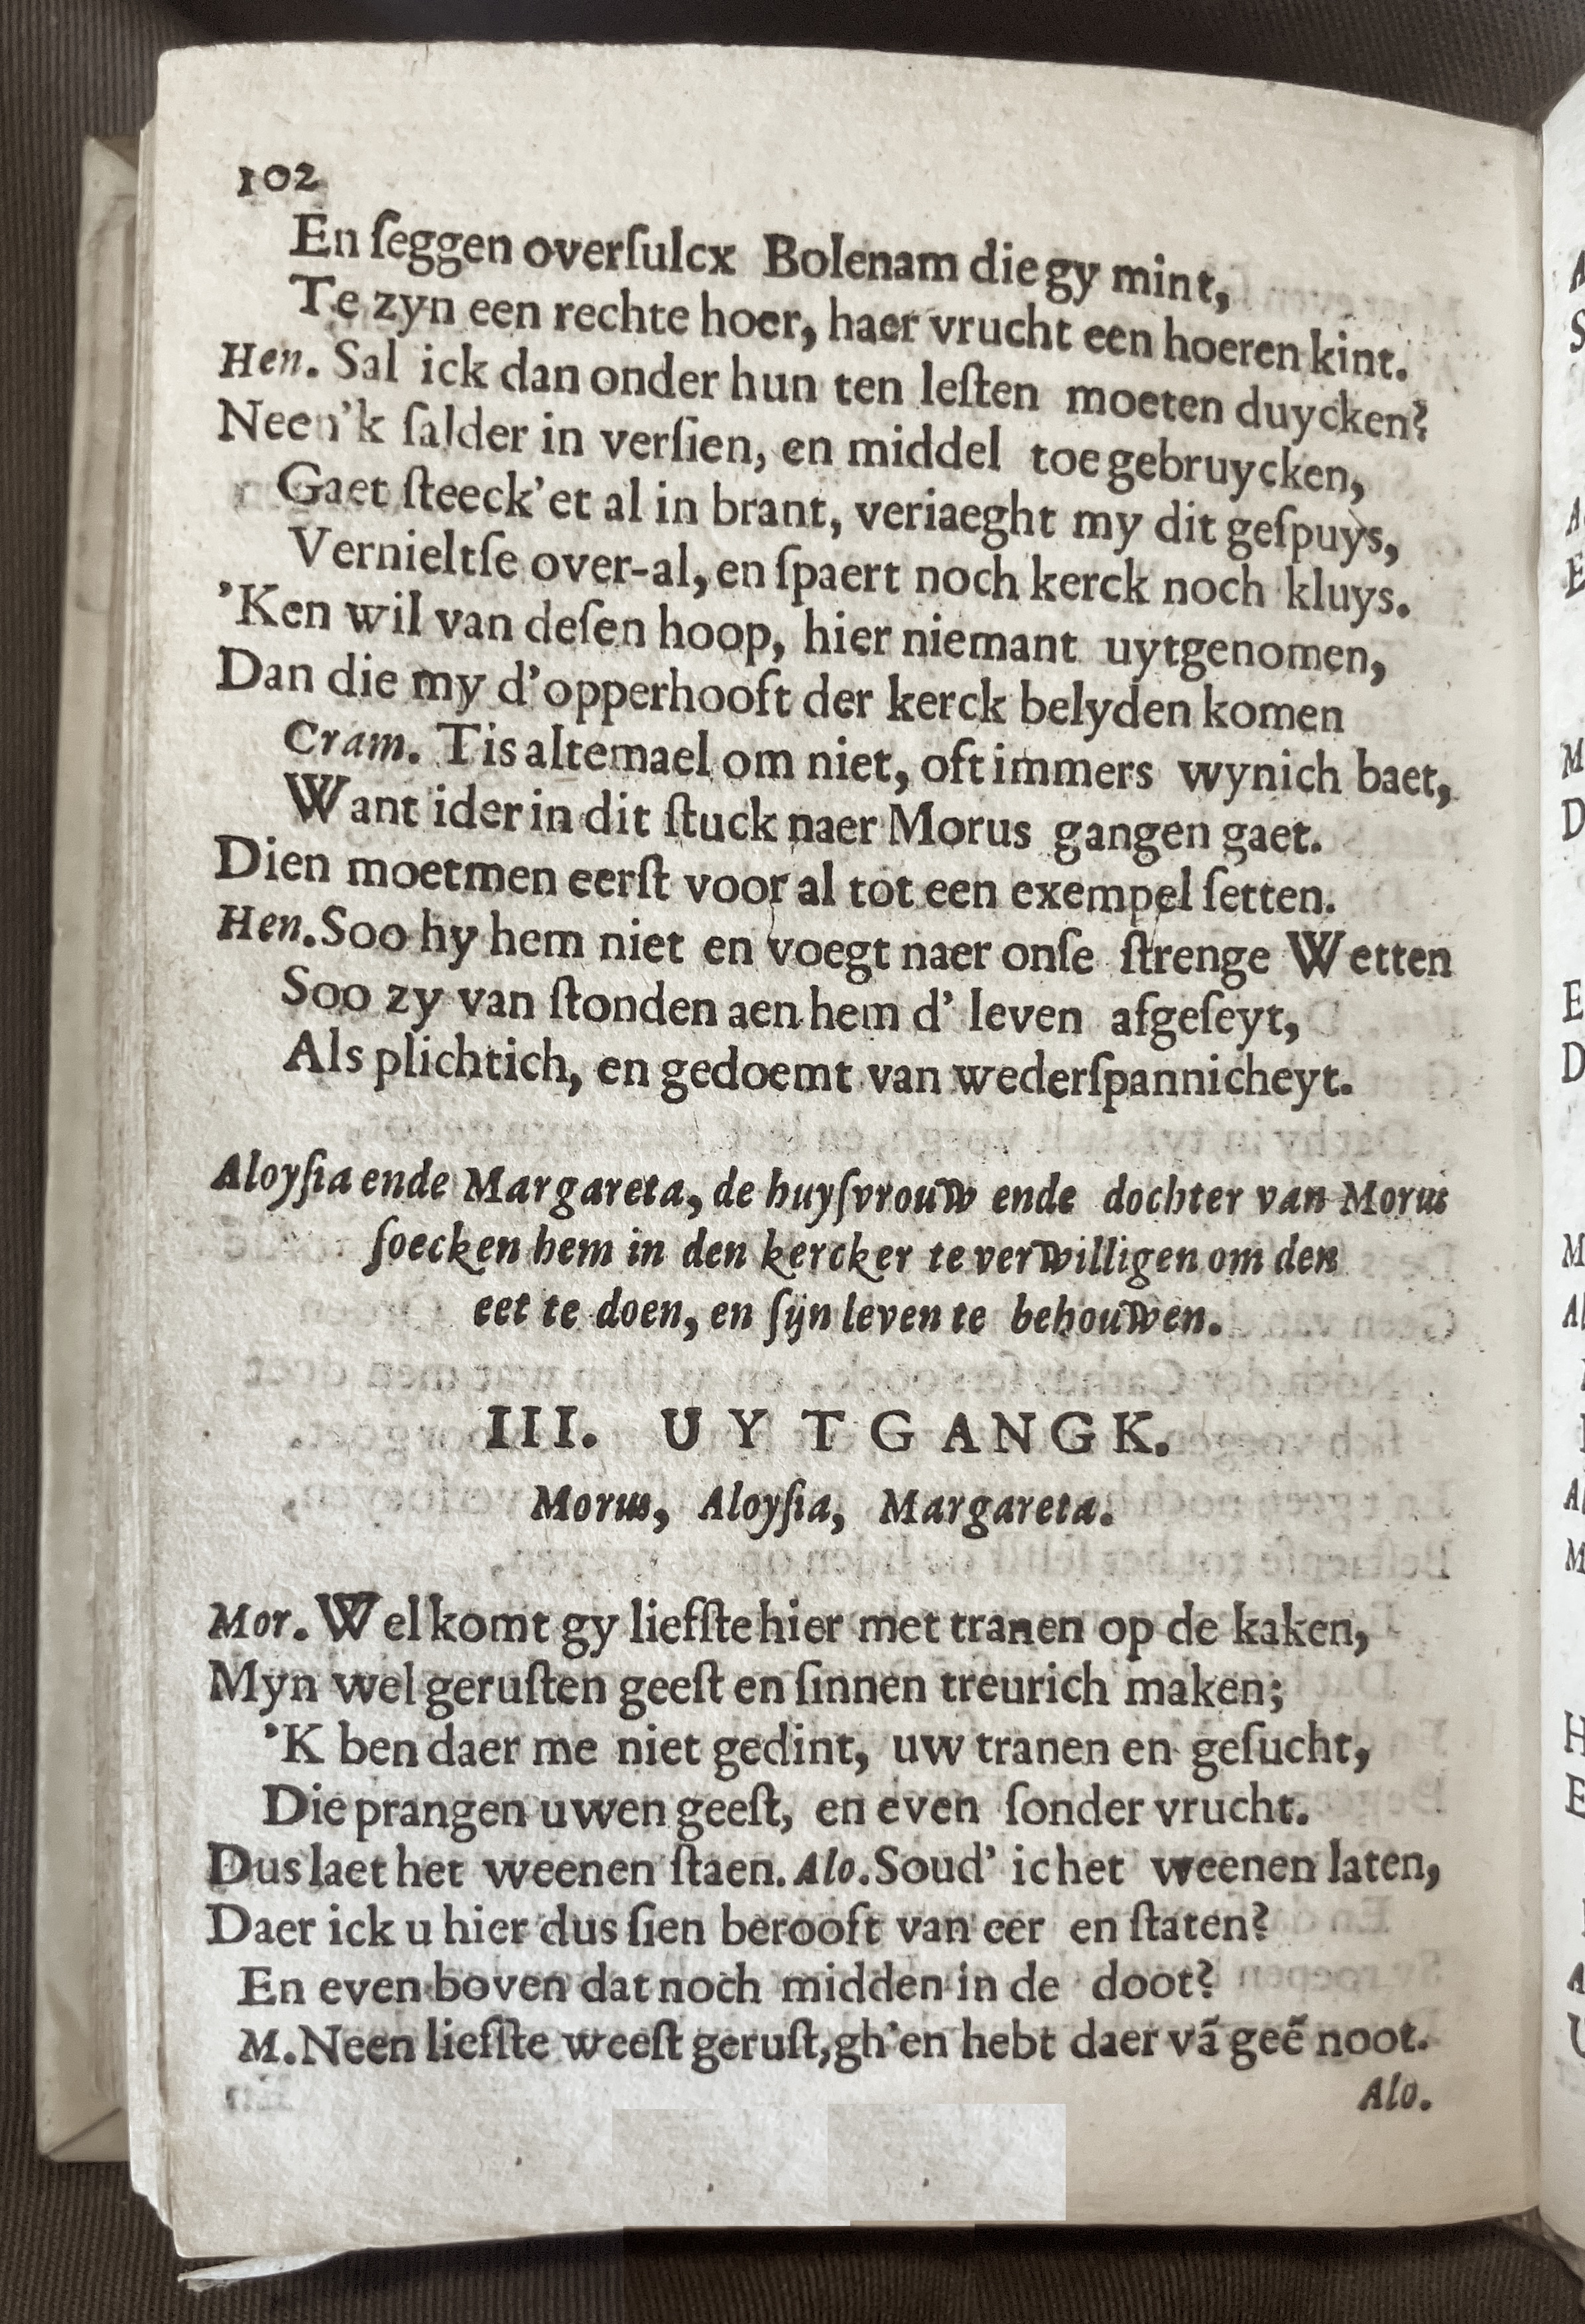 102
En ſeggen overſulcx Bolenam die gy mint,
Te zyn een rechte hoer, haer vrucht een hoeren kint.
Hen. Sal ick dan onder hun ten leſten moeten duycken?
Neen'k ſalder in verſien, en middel toe gebruycken,
Gaet ſteeck'et al in brant, veriaeght my dit geſpuys,
Vernieltſe over-al, en ſpaert noch kerck noch kluys.
'Ken wil van deſen hoop, hier niemant uytgenomen,
Dan die my d'opperhooft der kerck belyden komen
Cram. Tis altemael om niet, oft immers wynich baet,
Want ider in dit ſtuck naer Morus gangen gaet.
Dien moetmen eerſt voor al tot een exempel ſetten.
Hen. Soo hy hem niet en voegt naer onſe ſtrenge Wetten
Soo zy van ſtonden aen hem d' leven afgeſeyt,
Als plichtich, en gedoemt van wederſpannicheyt.
Aloyſia ende Margareta, de huyſvrouw ende dochter van Morus
ſoecken hem in den kercker te verwilligen om den
eet te doen, en ſijn leven te behouwen.
III. UYTGANGK.
Morus, Aloyſia, Margareta.
Mor. Wel komt gy liefſte hier met tranen op de kaken,
Myn wel geruſten geeſt en ſinnen treurich maken;
'K ben daer me niet gedint, uw tranen en geſucht,
Die prangen uwen geeſt, en even ſonder vrucht.
Dus laet het weenen ſtaen. Alo. Soud' ic het weenen laten,
Daer ick u hier dus ſien berooft van eer en ſtaten?
En even boven dat noch midden in de doot?
M. Neen liefſte weeſt geruſt, gh'en hebt daer vã geẽ noot.
Alo.